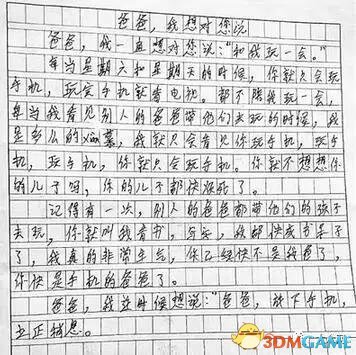 爸爸，我想对您说
爸爸，我一直想对您说："和我玩一会。"
每当星期六和星期天的时候，你就只会玩
手机，玩完手机就看电视。都不陪我玩一会，
每当我看见别人的爸爸带他们去玩的时候，我
是多么的xiàn慕，我就只会看见你玩手机，玩手
机，玩手机，你就只会玩手机。你就不想想你
的儿子吗，你的儿子都快没死了。
记得有一次，别人的爸爸都带他们的孩子
去玩，你就叫我看书，写字，我都快成书呆子
了，我真的非常生气，你已经快不是我爸了，
你快是手机的爸爸了。
爸爸，我这时候想说："爸爸，放下手机，
去正休息。
3DMGAME